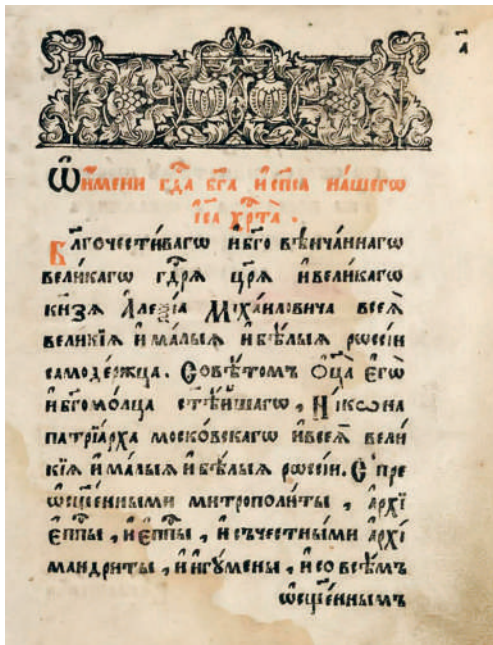 а҃
Ѽ и҆́мени гдⷭ҇а бг҃а и҆ сп҃са на́шегѡ
і҆и҃са хрⷭ҇та̀ .
Бл҃гочести́вагѡ и҆ бг҃о вѣнча́ннагѡ
вели́кагѡ гдⷭ҇рѧ цр҃ѧ и҆ вели́кагѡ
кнѧ́ѕѧ А҆леѯі́а Мїха́иловича всеѧ̀
вели́кїѧ и҆ ма́лыѧ и҆ бѣ́лыѧ рѡссі́и
самоде́ржца. Совѣ́томъ ѻ҆ц҃а̀ є҆гѡ̀
и҆ бг҃омо́лца ст҃ѣ́йшагѡ , Ні́кѡна
патрїа́рха моско́вскагѡ и҆ всеѧ̀ вели́
кїѧ и҆ ма́лыѧ и҆ бѣ́лыѧ рѡссі́и. С пре
ѡ҆сщ҃е́нными митрополи́ты , а҆рхї
є҆пⷭ҇пы , и҆ є҆пⷭ҇пы , и҆ съчестны́ми а҆рхі
мандри́ты , и҆ и҆гꙋ́мены , и҆ со всѣ́мъ
ѡ҆сщ҃е́ннымъ